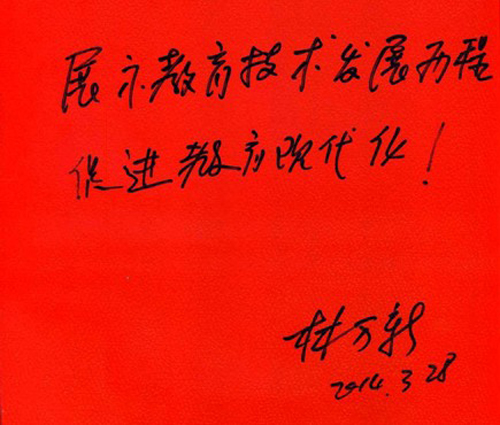 展示教育技术发展历程
促进教育现代化！
林万新
2014.3.28